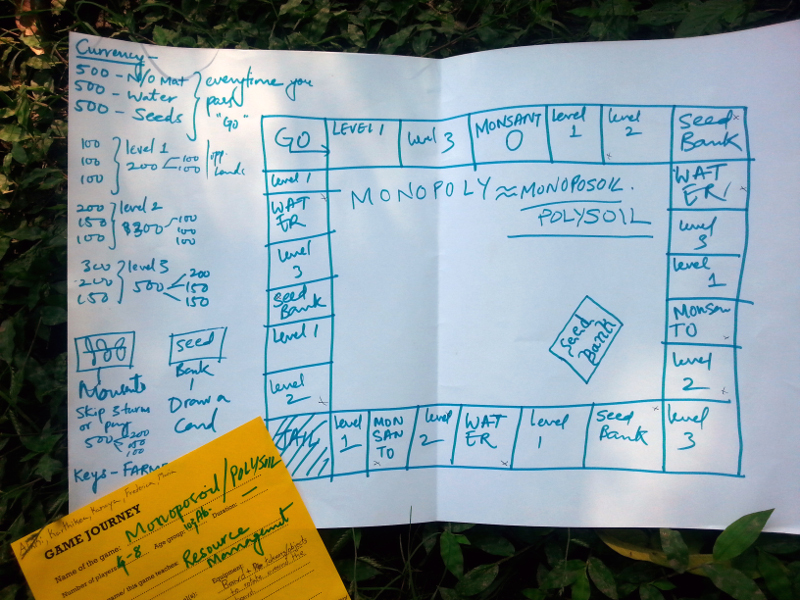 Currency -
500 - N/O Mat
500 - Water
500 - Seeds
everytime you
pass
"Go"
100
100
100
level 1
200
100
100
opp.
Lands
200
150
100
level 2
$300
100
100
100
300
200
150
level 3
500
200
150
150
Monsanto
Skip 3 turns
or pay
500
200
150
100
seed
Bank
Draw a
Card
Keys - FARM
GO
LEVEL 1
level 3
MONSANTO
level 1
level 2
Seed Bank
level 1
WATER
level 3
Seed Bank
level 1
level 2
JAIL
WATER
level 3
level 1
MONSANTO
level 2
level 1
MONSANTO
level 2
WATER
level 1
Seed Bank
level 3
MONOPOLY ≈ MONOPOSOIL.
POLYSOIL
Seed Bank
GAME JOURNEY
Name of the game: Monoposoil/POLYSOIL
Number of players: 4-8 Age group: Duration: —
game/ this game teaches: Resource
Management
Equipment